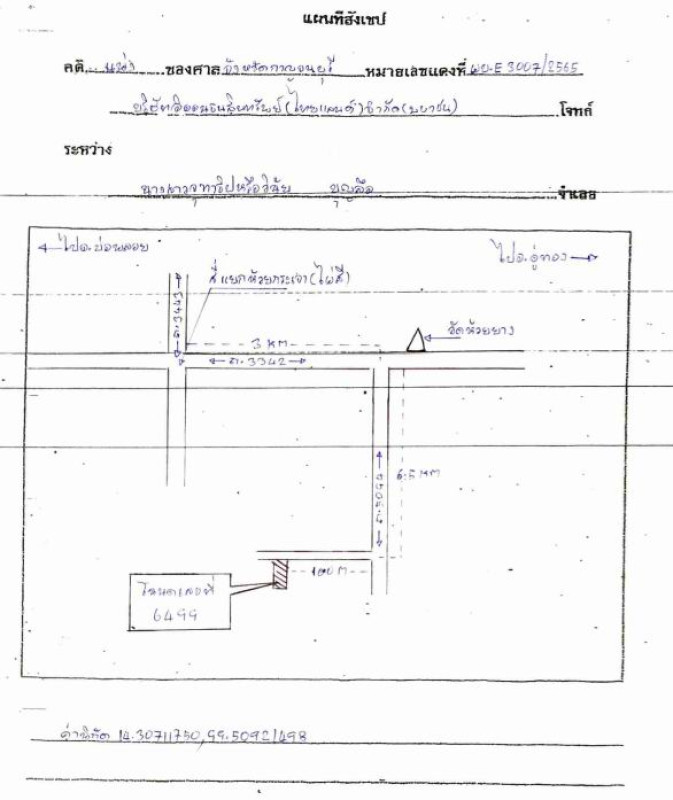 แผนที่สังเขป
คดี แพ่ง ของศาล จังหวัดกาญจนบุรี หมายเลขแดงที่ ผบ.E 3007/2565
(ไทยแลนด์) จำกัด (มหาชน) โจทก์
ระหว่าง
นางสาว บุญลือ จำเลย
ไปอ.บ่อพลอย
ไปอ.อู่ทอง
สี่แยกห้วยกระเจา (ไผ่สี)
ถ.3443
3 KM
วัดห้วยยาง
ถ.3342
6.5 KM
100 M
โฉนดเลขที่
6499
ค่าพิกัด 14.30711750, 99.50921498